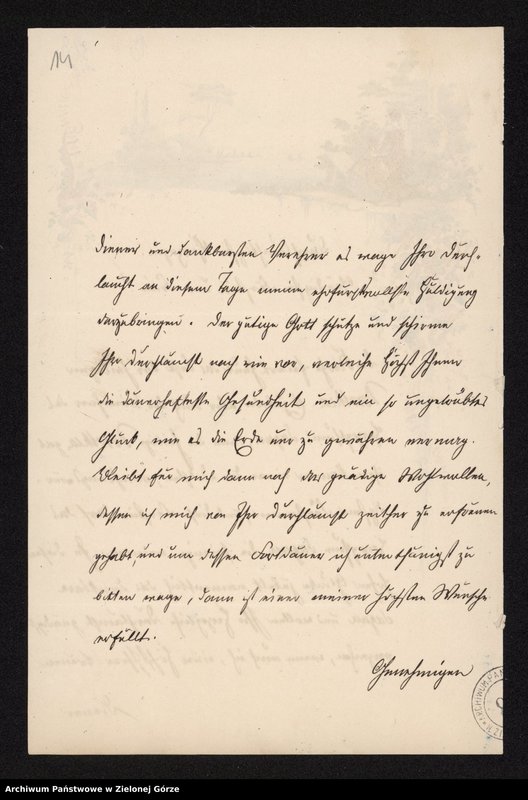 14
Diener und dankbarsten Verehrer es wage Ihro Durch-
laucht an diesem Tage meine ehrfurchtvollste Huldigung
darzubringen. Der gütige Gott schütze und schirme
Ihr Durchlaucht nach wie vor, verleihe Höchst Ihnen
die dauerhafteste Gesundheit und ein so ungetrübtes
Glück, wie es die Erde nur zu gewähren vermag.
Bleibt für mich dann noch das gnädige Wohlwollen,
dessen ich mich von Ihro Durchlaucht zeither zu erfreuen
gehabt, und um dessen Fortdauer ich unterthänigst zu
bitten wage, dann ist einer meiner höchsten Wünsche
erfüllt.
Genehmigen
Archiwum Państwowe w Zielonej Górze